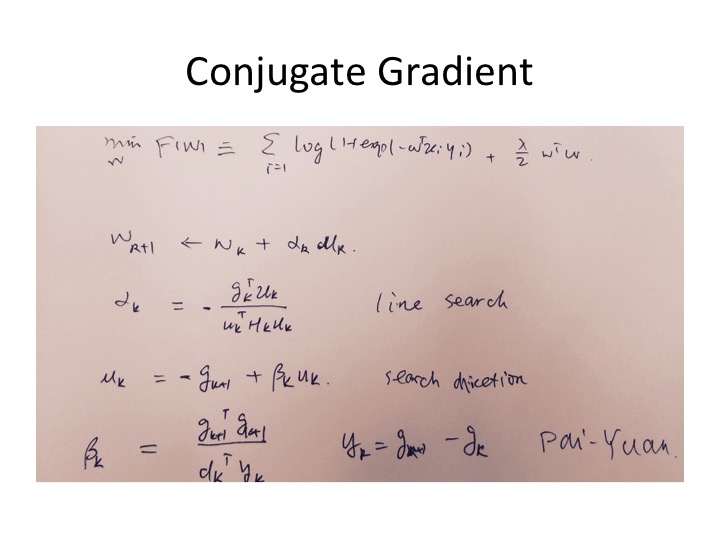 Conjugate Gradient
min_w F(w) ≡ Σ_{i=1} log(1+exp(-wᵀx_i y_i)) + λ/2 wᵀw.
w_{k+1} ← w_k + α_k u_k.
α_k = - g_kᵀu_k / u_kᵀH_k u_k line search
u_k = -g_{k+1} + β_k u_k. search direction
β_k = g_{k+1}ᵀ g_{k+1} / d_kᵀ y_k y_k = g_{k+1} - g_k Dai-Yuan.